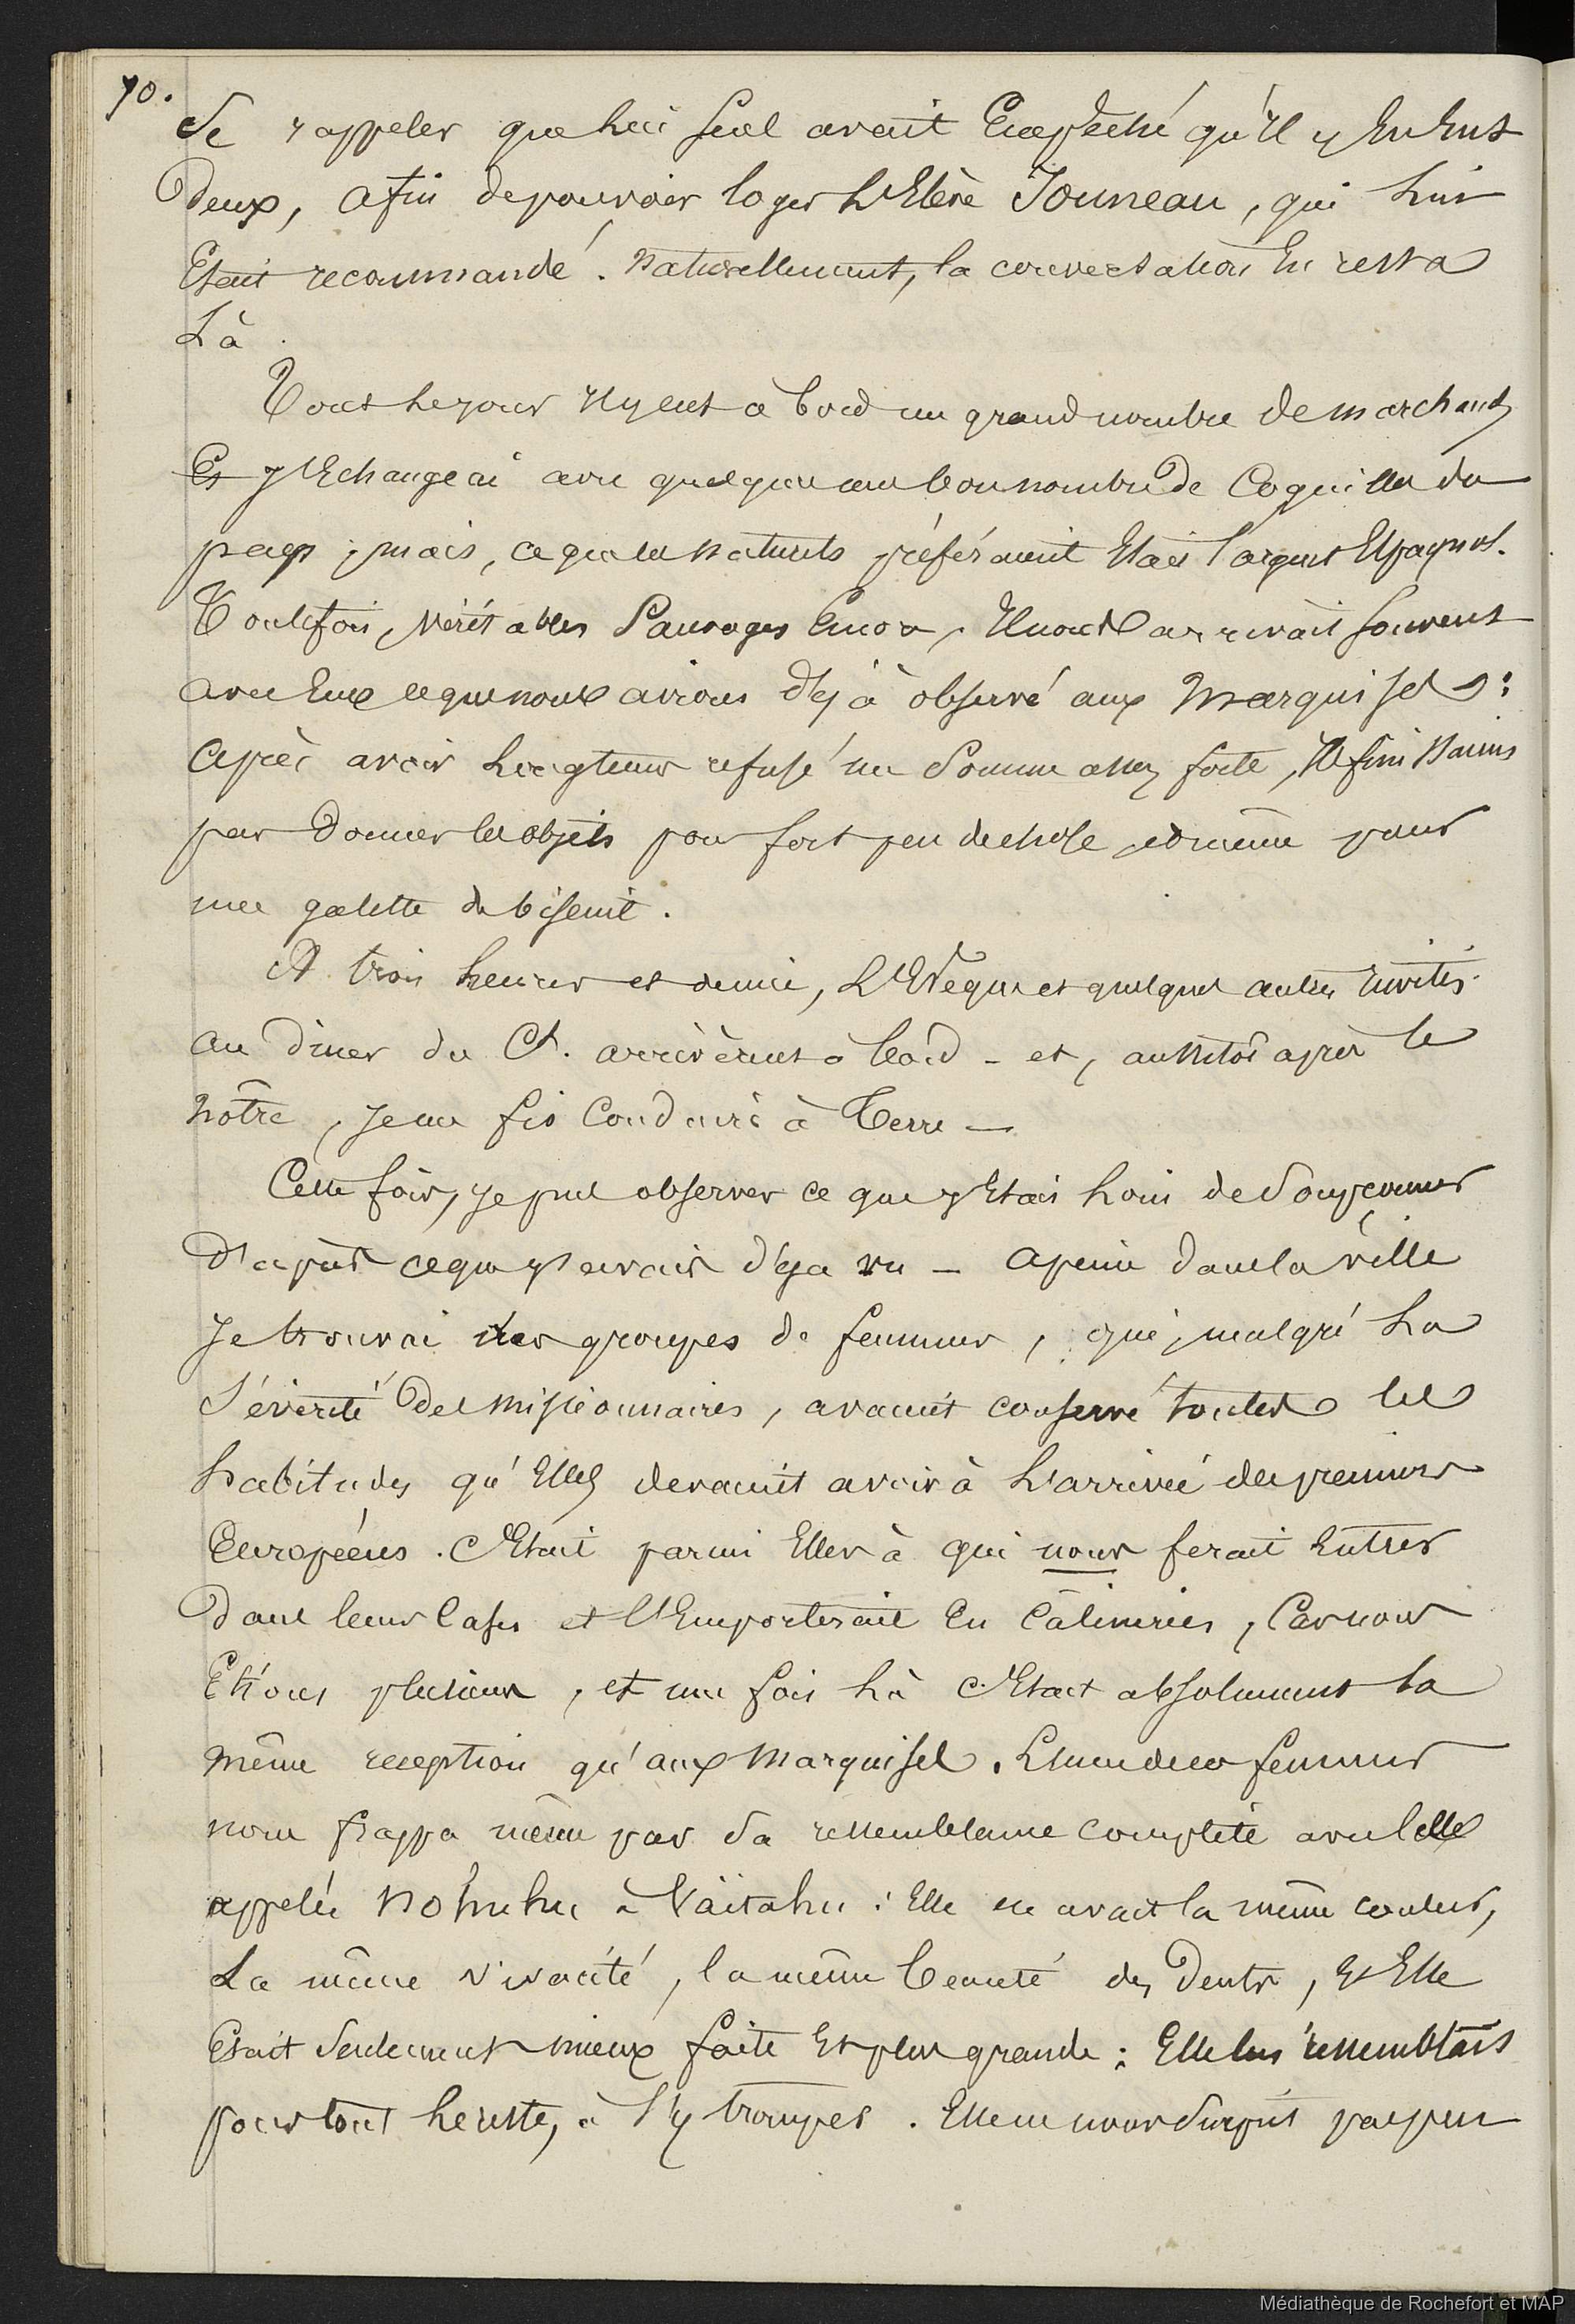 70.
Se rappeler que lui seul avait Empêché qu'Il y En Eut
Deux, afin de pouvoir loger L'Elève Jouneau, qui lui
Etait recommandé. Naturellement, la conversation En resta
Là.
Tout le jour Il y eut à bord un grand nombre de marchands
Et j'Echangeai avec quelques uns bon nombre de Coquilles du
pays ; mais, ce que les naturels préféraient Etait l'argent Espagnol.
Toutefois, véritables Sauvages Encore, Il nous arrivait souvent
avec Eux ce que nous avions déjà observé aux Marquises :
après avoir longtems refusé une Somme assez forte, Ils finissaient
par donner les objets pour fort peu de chose, et même pour
une galette de biscuit.
A trois heures et demie, L'Evêque et quelques autres Invités
au dîner du Ct. arrivèrent à bord - et, aussitôt après le
nôtre, je me fis Conduire à Terre -
Cette fois, je pus observer ce que j'Etais loin de Soupçonner
D'après ce que j'avais déja vu - a peine dans la ville
Je trouvai des groupes de femmes, qui, malgré La
Sévérité Des missionnaires, avaient conservé toutes les
habitudes qu'Elles devaient avoir à L'arrivée des premiers
Européens. C'Etait parmi Elles à qui nous ferait Entrer
Dans leurs Cases et l'Emporterait En Câlineries, Car nous
Etions plusieurs, et une fois Là C'Etait absolument la
même reception qu'aux Marquises. L'une de ces femmes
nous frappa même par Sa ressemblance complète avec celle
appelée Nohuhu à Vaitahu : Elle en avait la même couleur,
La même vivacité, la même beauté des Dents, Et Elle
Etait Seulement mieux faite Et plus grande : Elle lui ressemblait
pour tout le reste, à s'y tromper. Elle ne nous Surprit pas peu
Médiathèque de Rochefort et MAP